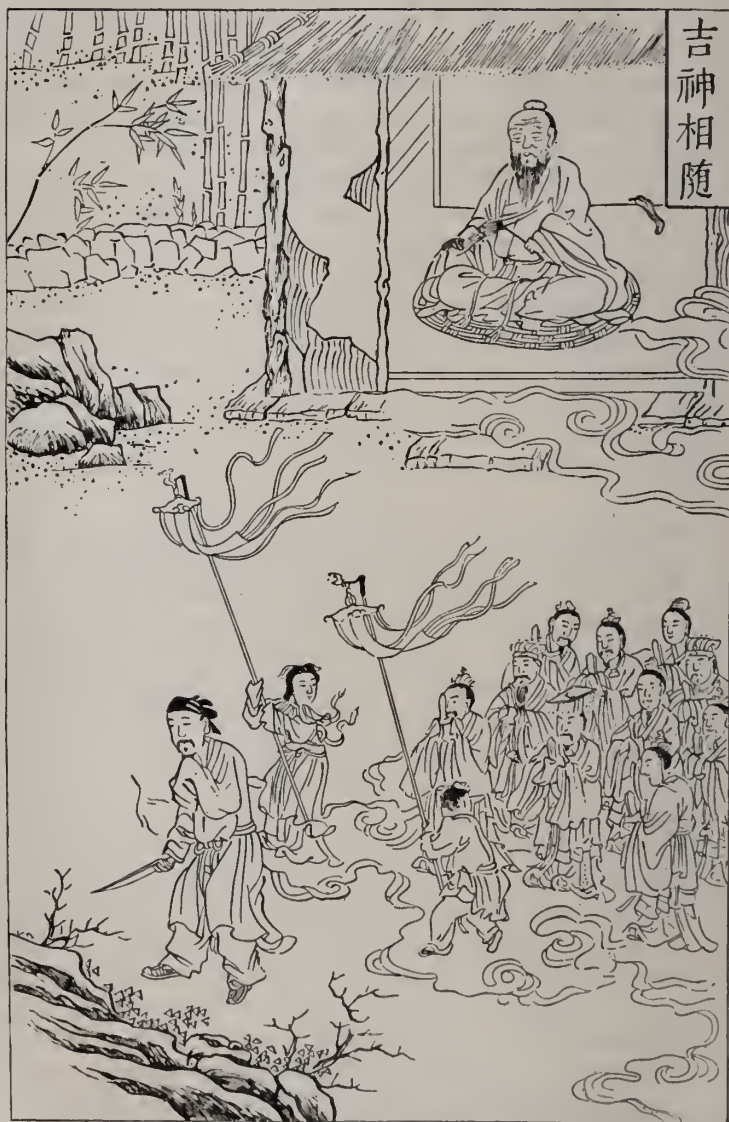 吉神相随